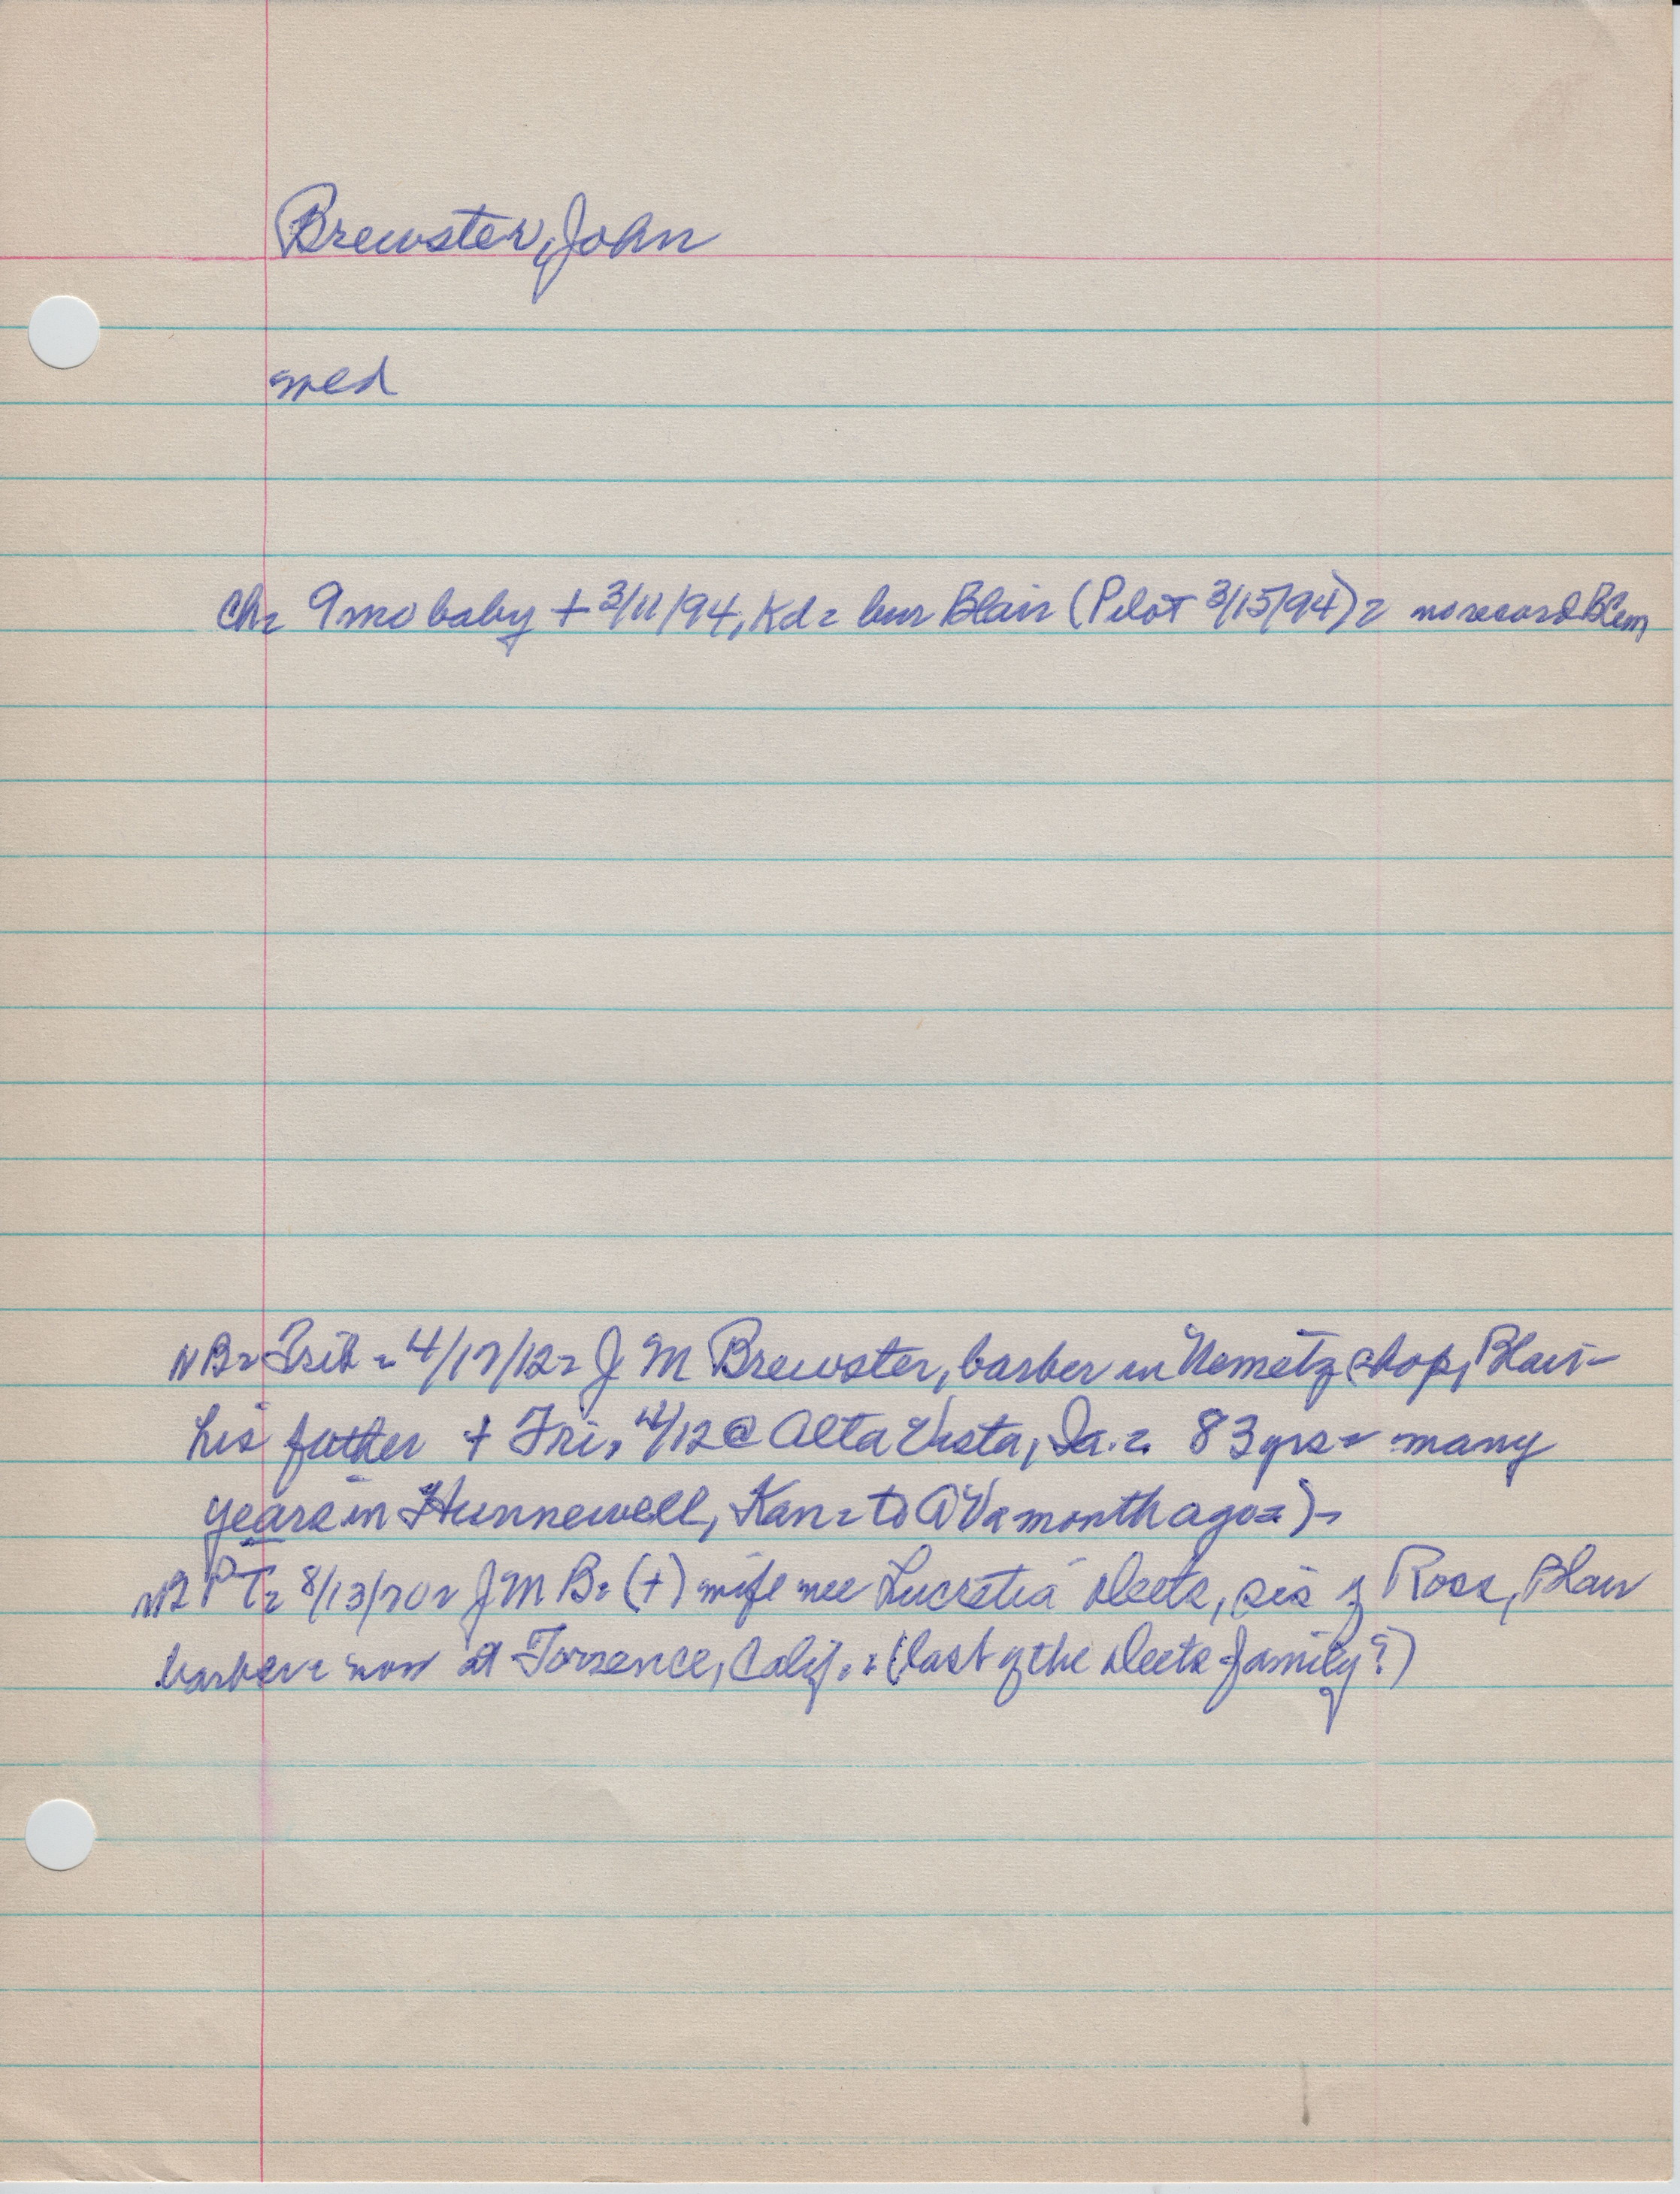 Brewster, John
med
Ch= 9 mo baby + 3/11/94, Kd= bur Blair (Pilot 3/15/94)= no record BCem
NB= Trib = 4/17/12= J M Brewster, barber in Nemetz shop, Blair-
his father + Fri, 4/12 @ Alta Vista, Ia. = 83 yrs = many
years in Hunnewell, Kan = to AV a month ago =)-
NB PT= 8/13/20= J M B= (+) wife nee Lucretia Deets, sis of Ross, Blair
barber = now at Torrence, Calif. = (last of the Deets family?)